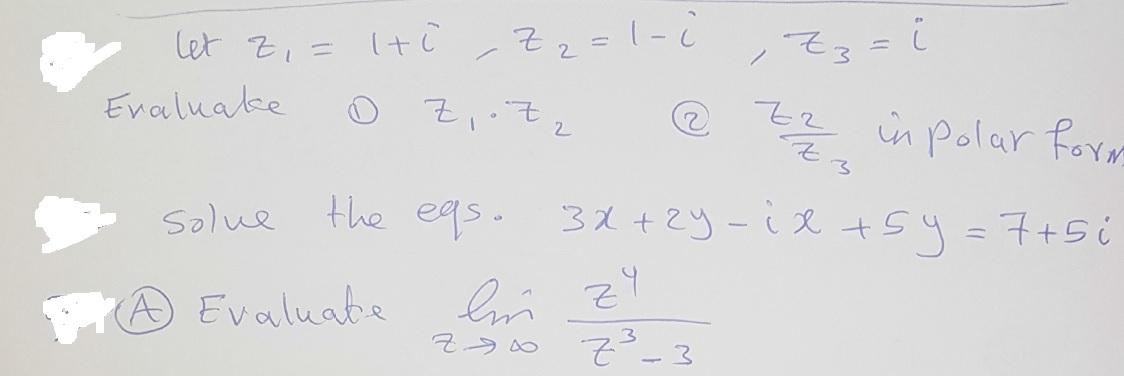 let z₁ = 1+i , z₂ = 1-i , z₃ = i
Evaluake ① z₁ . z₂ ② z₂/z₃ in polar form
solve the eqs. 3x + 2y - ix + 5y = 7+5i
Ⓐ Evaluate lim z→∞ z⁴/(z³-3)